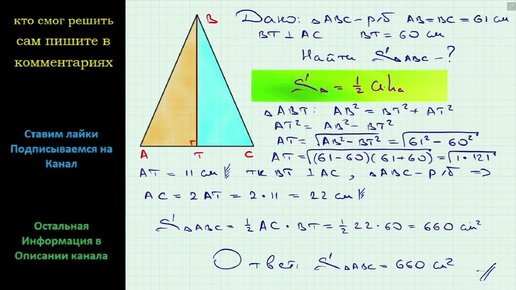 кто смог решить
сам пишите в
комментариях
Ставим лайки
Подписываемся на
Канал
Остальная
Информация в
Описании канала
B
A T C
Дано: △ABC - р/б AB=BC=61 см
BT ⊥ AC BT=60 см
Найти S△ABC - ?
S△ = 1/2 a h_a
△ABT: AB² = BT² + AT²
AT² = AB² - BT²
AT = √(AB² - BT²) = √(61² - 60²)
AT = √((61-60)(61+60)) = √(1·121)
AT = 11 см тк BT ⊥ AC, △ABC - р/б ⇒
AC = 2AT = 2·11 = 22 см
S△ABC = 1/2 AC · BT = 1/2 22·60 = 660 см²
Ответ: S△ABC = 660 см²